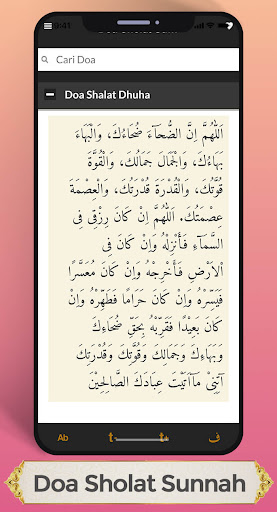 9:41
Doa Sholat Sunn
Cari Doa
Doa Shalat Dhuha
اَللّٰهُمَّ اِنَّ الضُّحَآءَ ضُحَاءُكَ، وَالْبَهَاءَ
بَهَاءُكَ، وَالْجَمَالَ جَمَالُكَ، وَالْقُوَّةَ
قُوَّتُكَ، وَالْقُدْرَةَ قُدْرَتُكَ، وَالْعِصْمَةَ
عِصْمَتُكَ. اَللّٰهُمَّ اِنْ كَانَ رِزْقِى فِى
السَّمَآءِ فَأَنْزِلْهُ وَاِنْ كَانَ فِى
اْلاَرْضِ فَأَخْرِجْهُ وَاِنْ كَانَ مُعَسَّرًا
فَيَسِّرْهُ وَاِنْ كَانَ حَرَامًا فَطَهِّرْهُ وَاِنْ
كَانَ بَعِيْدًا فَقَرِّبْهُ بِحَقِّ ضُحَاءِكَ
وَبَهَاءِكَ وَجَمَالِكَ وَقُوَّتِكَ وَقُدْرَتِكَ
آتِنِيْ مَآاَتَيْتَ عِبَادَكَ الصَّالِحِيْنَ
Ab
ف
Doa Sholat Sunnah